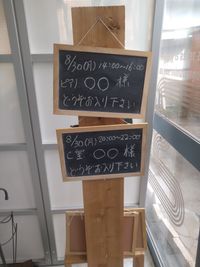 8/30(月) 14:00~16:00
ピアノ ○○ 様
どうぞお入り下さい
8/30(月) 20:00~22:00
C室 ○○ 様
どうぞお入り下さい